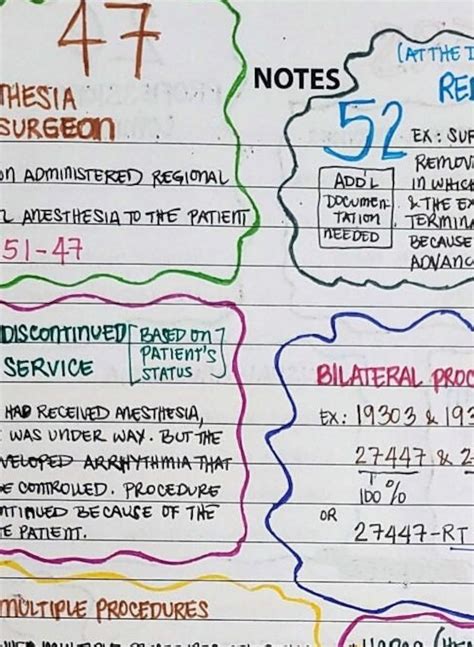 47
THESIA
SURGEON
ON ADMINISTERED REGIONAL
L ANESTHESIA TO THE PATIENT
51-47
NOTES
(AT THE
52
EX: SUR
REMOV
ADD'L
DOCUMEN-
TATION
NEEDED
IN WHICH
& THE EX
TERMINA
BECAUSE
ADVANC
DISCONTINUED
SERVICE
BASED ON
PATIENT'S
STATUS
HAD RECEIVED ANESTHESIA,
WAS UNDER WAY. BUT THE
VELOPED ARRHYTHMIA THAT
E CONTROLLED. PROCEDURE
NTINUED BECAUSE OF THE
E PATIENT.
BILATERAL PROC
EX: 19303 & 193
27447 & 2
100%
OR
27447-RT
MULTIPLE PROCEDURES